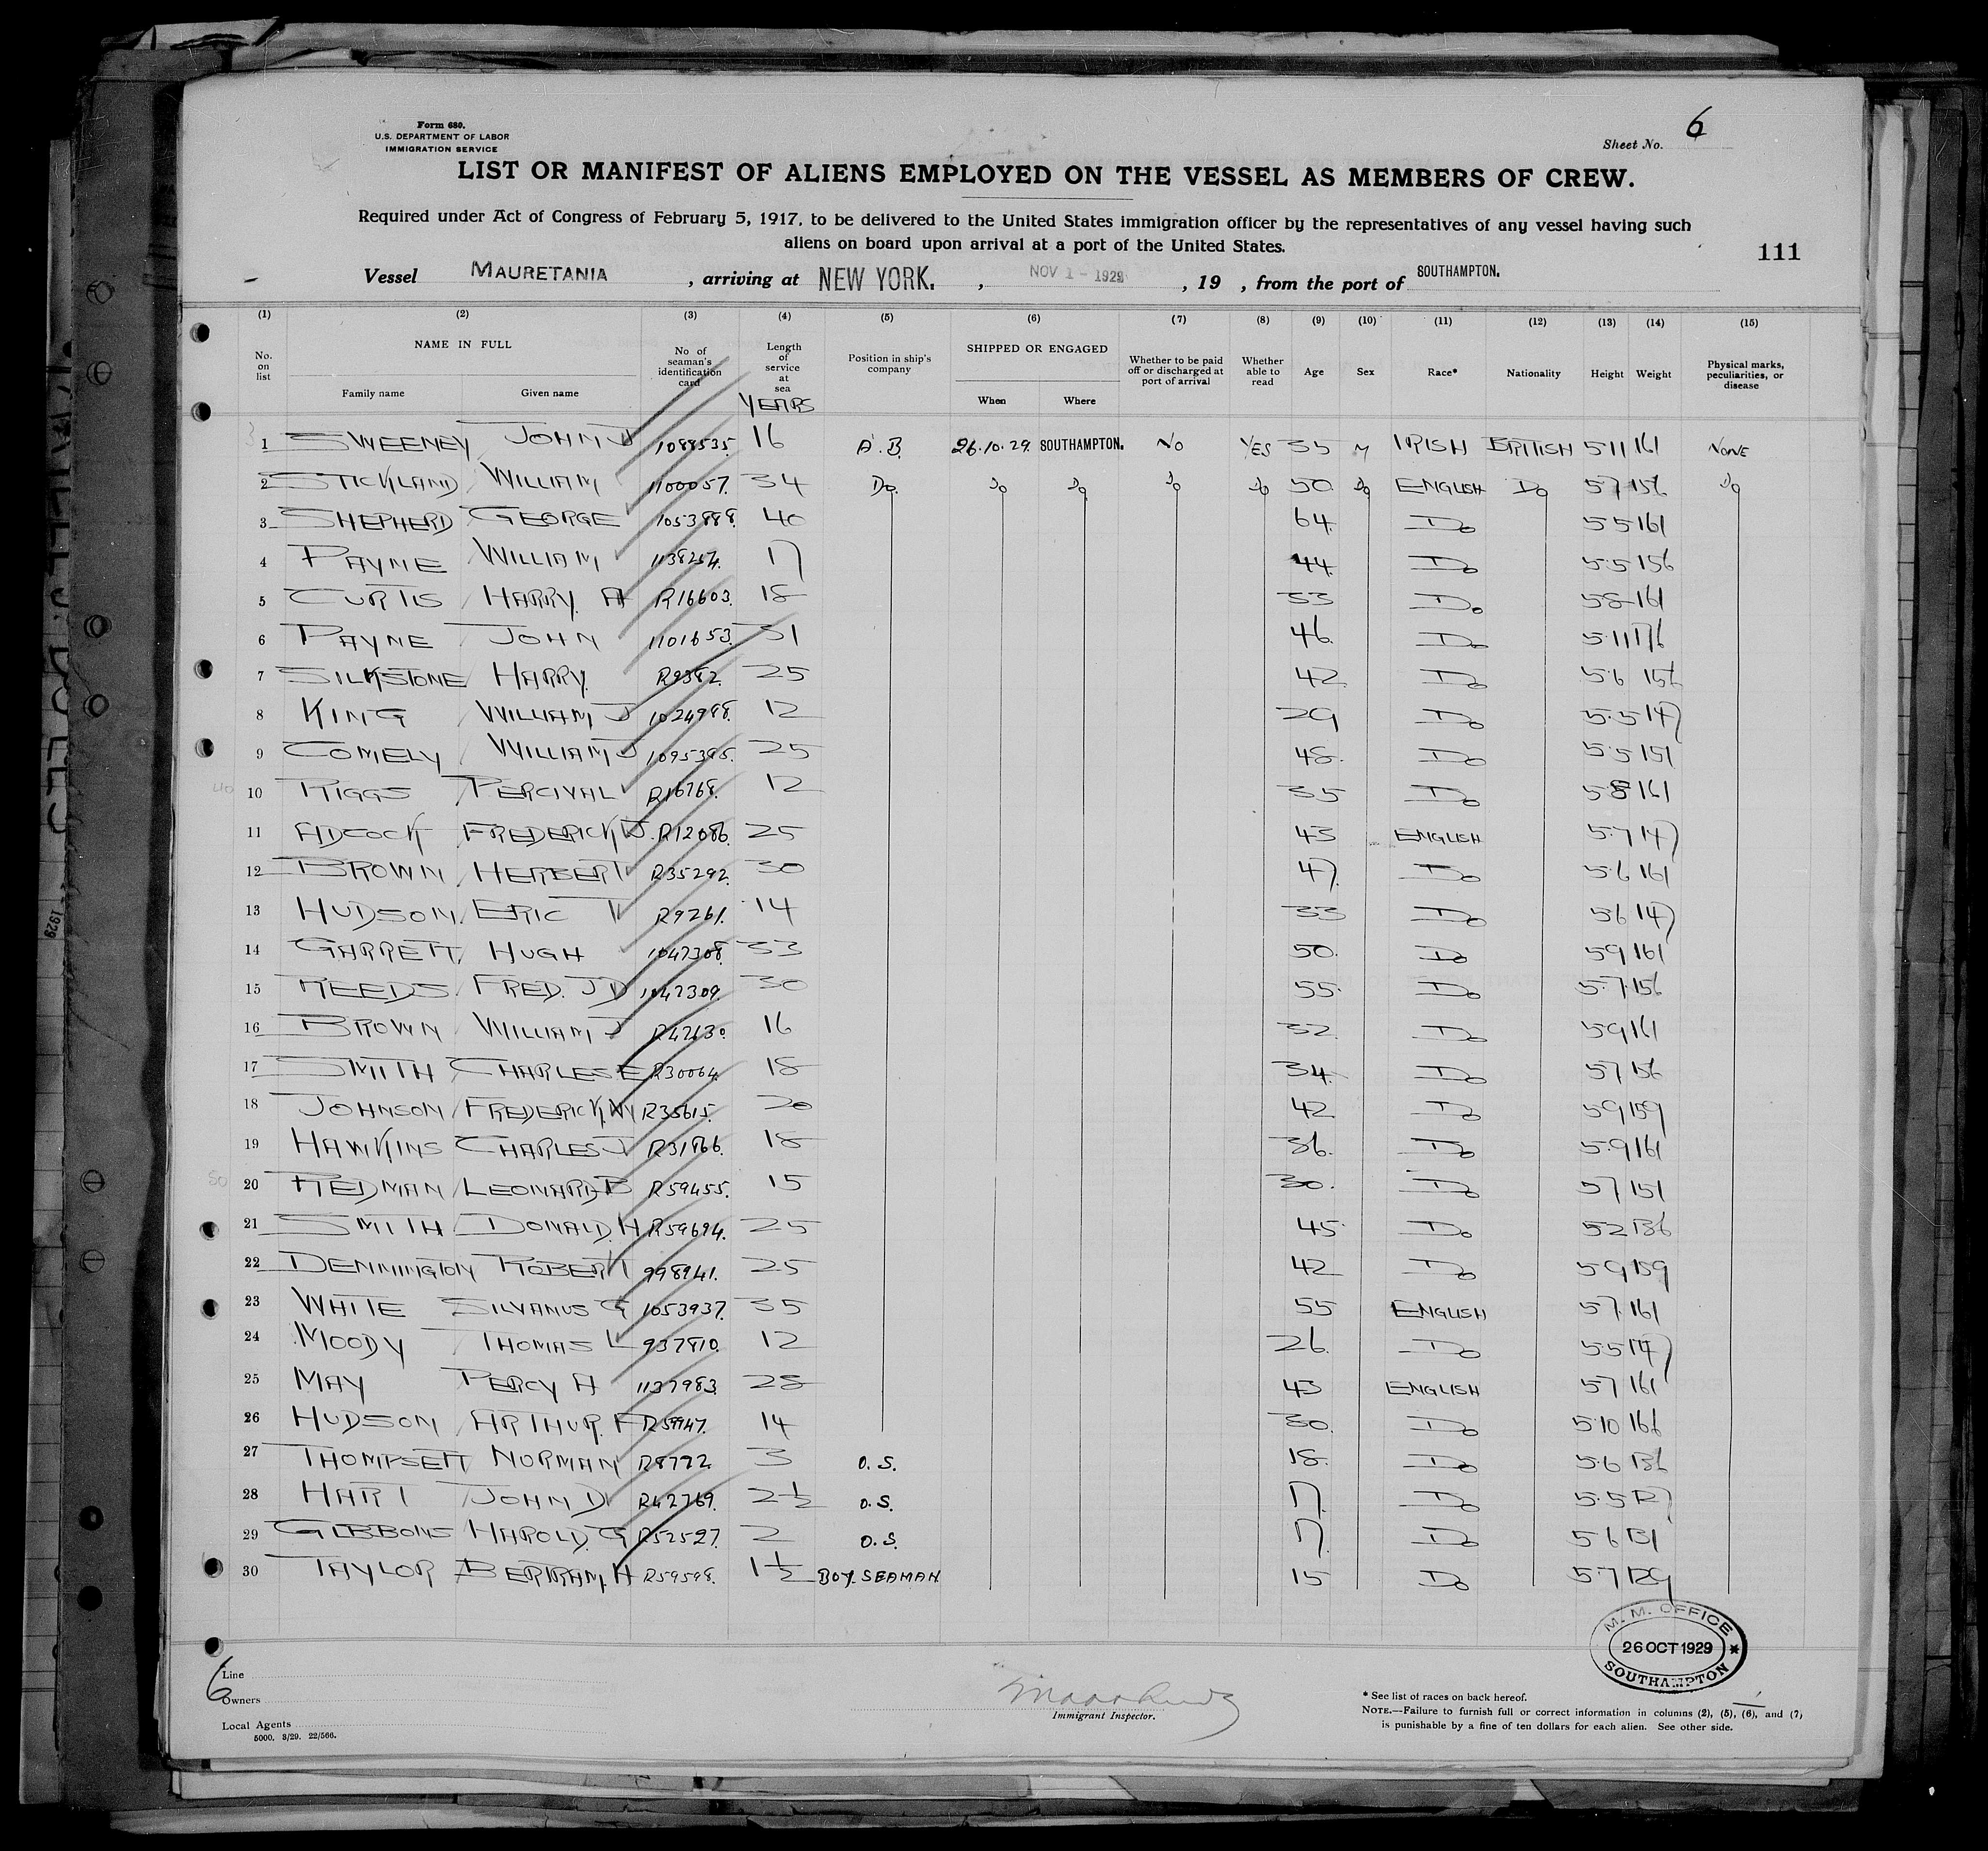 Form 680.
U.S. DEPARTMENT OF LABOR
IMMIGRATION SERVICE
Sheet No. 6
LIST OR MANIFEST OF ALIENS EMPLOYED ON THE VESSEL AS MEMBERS OF CREW.
Required under Act of Congress of February 5, 1917, to be delivered to the United States immigration officer by the representatives of any vessel having such
aliens on board upon arrival at a port of the United States.
111
Vessel MAURETANIA, arriving at NEW YORK., NOV 1 - 1929, 19 , from the port of SOUTHAMPTON.
(1) (2) (3) (4) (5) (6) (7) (8) (9) (10) (11) (12) (13) (14) (15)
No. on list NAME IN FULL Family name Given name No. of seaman's identification card Length of service at sea YEARS Position in ship's company SHIPPED OR ENGAGED When Where Whether to be paid off or discharged at port of arrival Whether able to read Age Sex Race* Nationality Height Weight Physical marks, peculiarities, or disease
1 SWEENEY JOHN J 1088535. 16 A.B. 26.10.29. SOUTHAMPTON. NO YES 35 M IRISH BRITISH 5 11 161 NONE
2 STICKLAND WILLIAM 1100057. 34 Do. Do Do Do Do 50 Do ENGLISH Do 5 7 156 Do
3 SHEPHERD GEORGE 1053888. 40 64. Do 5 5 161
4 PAYNE WILLIAM 1138254. 17 44. Do 5.5 156
5 CURTIS HARRY. A R16603. 18 33 Do 5 8 161
6 PAYNE JOHN 1101653. 31 46. Do 5.11 176
7 SILKSTONE HARRY. R9382. 25 42 Do 5.6 156
8 KING WILLIAM J 1024998. 12 29 Do 5.5 147
9 COMELY WILLIAM J 1095395. 25 48. Do 5.5 151
10 RIGGS PERCIVAL R16768. 12 35 Do 5.8 161
11 ADCOCK FREDERICK J. R12086. 25 43 ENGLISH 5.7 147
12 BROWN HERBERT R35292. 30 47. Do 5.6 161
13 HUDSON. ERIC R9261. 14 33 Do 5 6 147
14 GARRETT HUGH 1047308. 33 50. Do 5 9 161
15 REEDS FRED. J D 1047309. 30 55. Do 5.7. 156
16 BROWN WILLIAM J R42630. 16 32. Do 5 9 161
17 SMITH CHARLES. E R30064. 18 34. Do 5 7 156
18 JOHNSON FREDERICK. W R35615. 20 42 Do 5 9 159
19 HAWKINS CHARLES J R31866. 18 36. Do 5.9 161
20 REDMAN LEONARD B R59455. 15 30. Do 5 7 151
21 SMITH DONALD. H R59694. 25 45. Do 5 2 136
22 DENNINGTON ROBERT 998941. 25 42 Do 5 9 159
23 WHITE SILVANUS G 1053937. 35 55 ENGLISH 5 7. 161
24 MOODY THOMAS L 937810. 12 26. Do 5.5 147
25 MAY PERCY A 1137983. 28 43 ENGLISH 5 7 161
26 HUDSON ARTHUR. F R59947. 14 30. Do 5.10 166
27 THOMPSETT NORMAN R8772. 3 O.S. 18. Do 5.6 136
28 HART JOHN D R42769. 2½ O.S. 17. Do 5.5 127
29 GIBBONS HAROLD. G R52527. 2 O.S. 17. Do 5 6 131
30 TAYLOR BERTRAM. H R59598. 1½ BOY. SEAMAN. 15 Do 5.7 129
M. M. OFFICE
26 OCT 1929
SOUTHAMPTON
6
Line
Owners
Local Agents
5000. 3/29. 22/566.
Immigrant Inspector.
* See list of races on back hereof.
NOTE.—Failure to furnish full or correct information in columns (2), (5), (6), and (7)
is punishable by a fine of ten dollars for each alien. See other side.